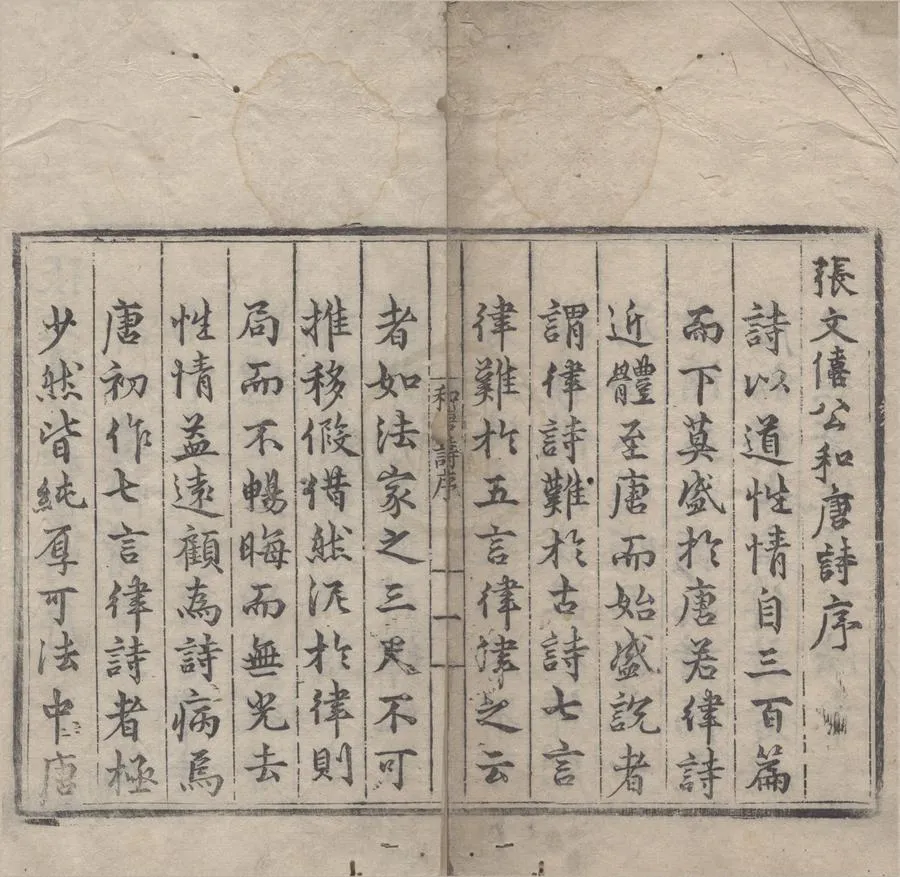 張文僖公和唐詩序
詩以道性情自三百篇
而下莫盛於唐若律詩
近體至唐而始盛說者
謂律詩難於古詩七言
律難於五言律律之云
和唐詩序
一
者如法家之三尺不可
推移假借然泥於律則
局而不暢晦而無光去
性情益遠顧為詩病焉
唐初作七言律詩者極
少然皆純厚可法中唐